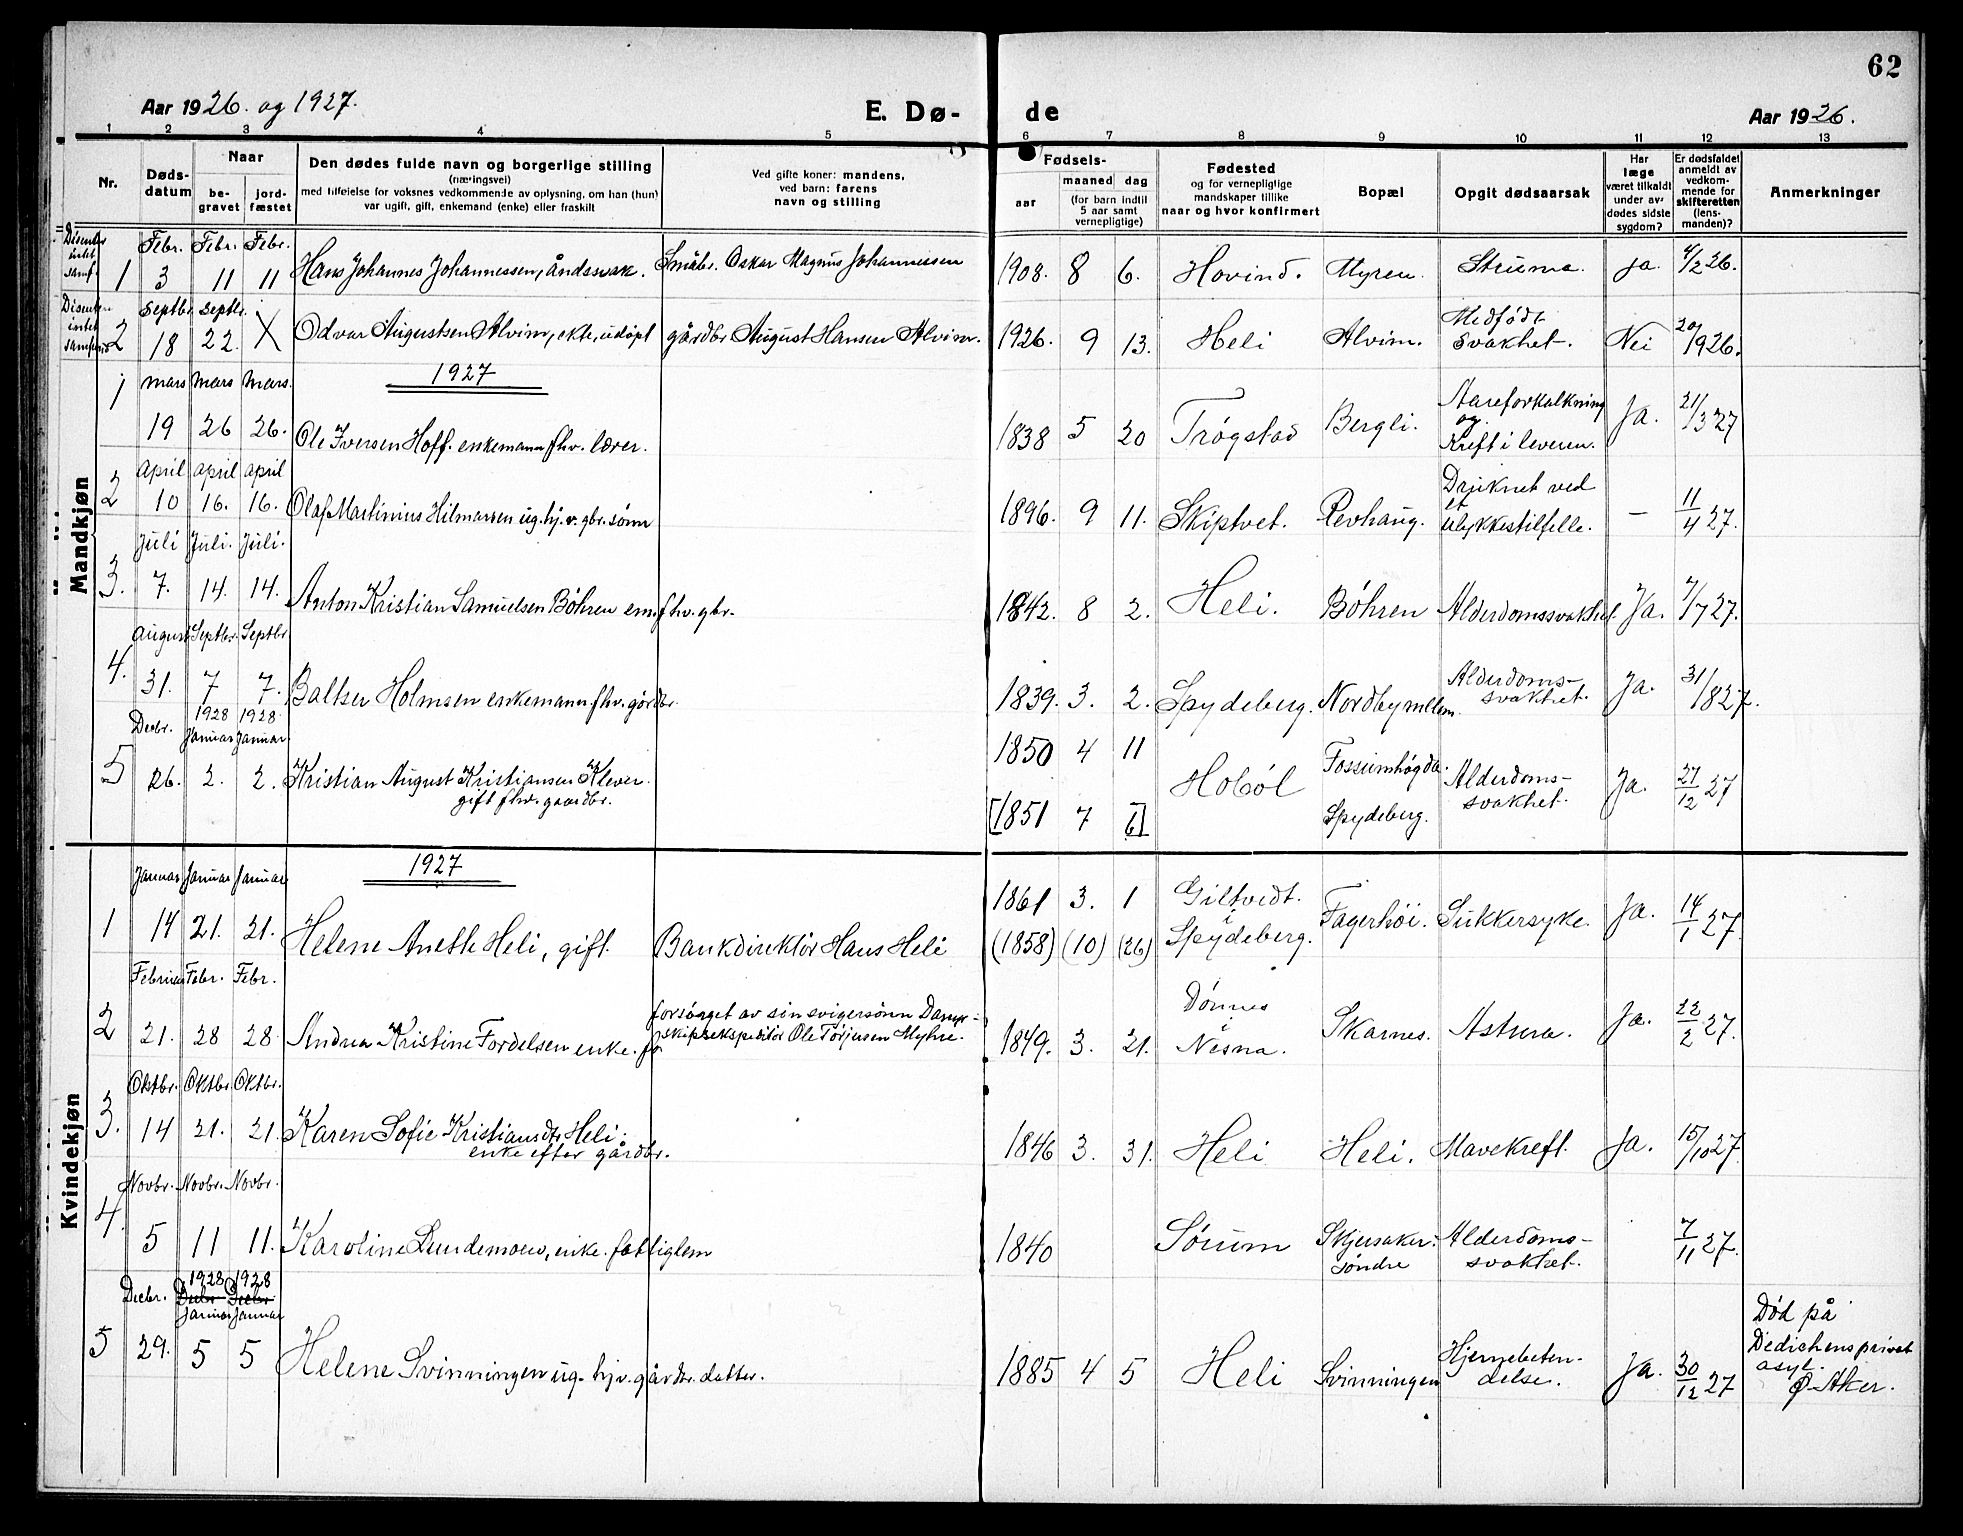 62
Aar 1926. og 1927.
E. Dø-
de
Aar 1926.
1 2 3 4 5 6 7 8 9 10 11 12 13
Nr.
Døds-
datum
Naar
be-
gravet
jord-
fæstet
Den dødes fulde navn og borgerlige stilling
(næringsvei)
med tilføielse for voksnes vedkommende av oplysning, om han (hun)
var ugift, gift, enkemand (enke) eller fraskilt
Ved gifte koner: mandens,
ved barn: farens
navn og stilling
Fødsels-
aar
maaned
dag
(for barn indtil
5 aar samt
vernepligtige)
Fødested
og for vernepligtige
mandskaper tillike
naar og hvor konfirmert
Bopæl
Opgit dødsaarsak
Har
læge
været tilkaldt
under av-
dødes sidste
sygdom?
Er dødsfaldet
anmeldt av
vedkom-
mende for
skifteretten
(lens-
manden)?
Anmerkninger
Mandkjøn
Disenter
intet
samf.
1
Febr. Febr. Febr.
3 11 11
Hans Johannes Johannessen, åndssvak.
Småbr. Oskar Magnus Johannessen
1908. 8 6. Hovind. Myren. Struma. ja. 4/2 26.
Disenter
intet
samfund
2
Septbr. Septbr.
18 22. X
Odvar Augustsen Alvim, ekte, udøpt
gårdbr August Hansen Alvim.
1926. 9 13. Heli Alvim.
Medfødt
svakhet.
Nei 20/9 26.
1927
1
mars mars mars.
19 26 26.
Ole Iversen Hoff. enkemann fhv. lærer.
1838 5 20 Trøgstad Bergli.
Aareforkalkning
og
Kreft i leveren.
Ja. 21/3 27
2
April april april
10 16. 16.
Olaf Martinius Hilmarsen ug. hj. v. gbr. sønn
1896. 9 11. Skiptvet. Revhaug.
Druknet ved
et
ulykkestilfelle.
— 11/4 27.
3.
Juli Juli. Juli.
7. 14. 14.
Anton Kristian Samuelsen Böhren em. fhv. gbr.
1842. 8 2. Heli. Böhren Alderdomssvakhet. Ja. 7/7 27.
4.
August Septbr. Septbr
31. 7 7.
Baltser Holmsen enkemann fhv. gårdbr.
1839. 3. 2. Spydeberg. Nordbymellem.
Alderdoms-
svakhet.
Ja. 31/8 27.
5
Decbr.
1928 1928
Januar Januar
26. 2. 2.
Kristian August Kristiansen Klever.
gift fhv. gaardbr.
1850 4 11
[1851 7 6]
Hobøl
Fossumhøgda.
Spydeberg.
Alderdoms-
svakhet.
Ja. 27/12 27
Kvindekjøn
1927
1
Januar Januar Januar
14 21. 21.
Helene Anette Heli, gift.
Bankdirektör Hans Heli
1861 3. 1
(1858) (10) (26)
Giltvedt.
i
Spydeberg.
Fagerhöi. Sukkersyke. Ja. 14/1 27.
2
Februar Febr. Febr.
21. 28 28.
Andrea Kristine Fordelsen enke. fo
forsørget av sin svigersønn Damp-
skipsekspeditör Ole Torjusen Myhre.
1849. 3. 21.
Dønnes
i
Nesna.
Skarnes. Astma. Ja. 22/2 27.
3.
Oktbr. Oktbr. Oktbr.
14 21. 21
Karen Sofie Kristiansdtr. Heli.
enke efter gårdbr.
1846 3. 31. Heli Heli. Mavekreft. Ja. 15/10 27.
4.
Novbr. Novbr. Novbr.
5 11 11.
Karoline Lundemoen, enke. fattiglem
1840 Sørum
Skjersaker-
søndre
Alderdoms-
svakhet.
7/11 27.
5
Decbr.
1928 1928
Decbr Decbr.
Januar Januar
29. 5 5
Helene Svinningen ug. hjv. gårdbr. datter.
1885 4 5 Heli Svinningen
Hjernebeten-
delse.
Ja. 30/12 27
Død på
Dedichens privat
asyl.
Ø. Aker.